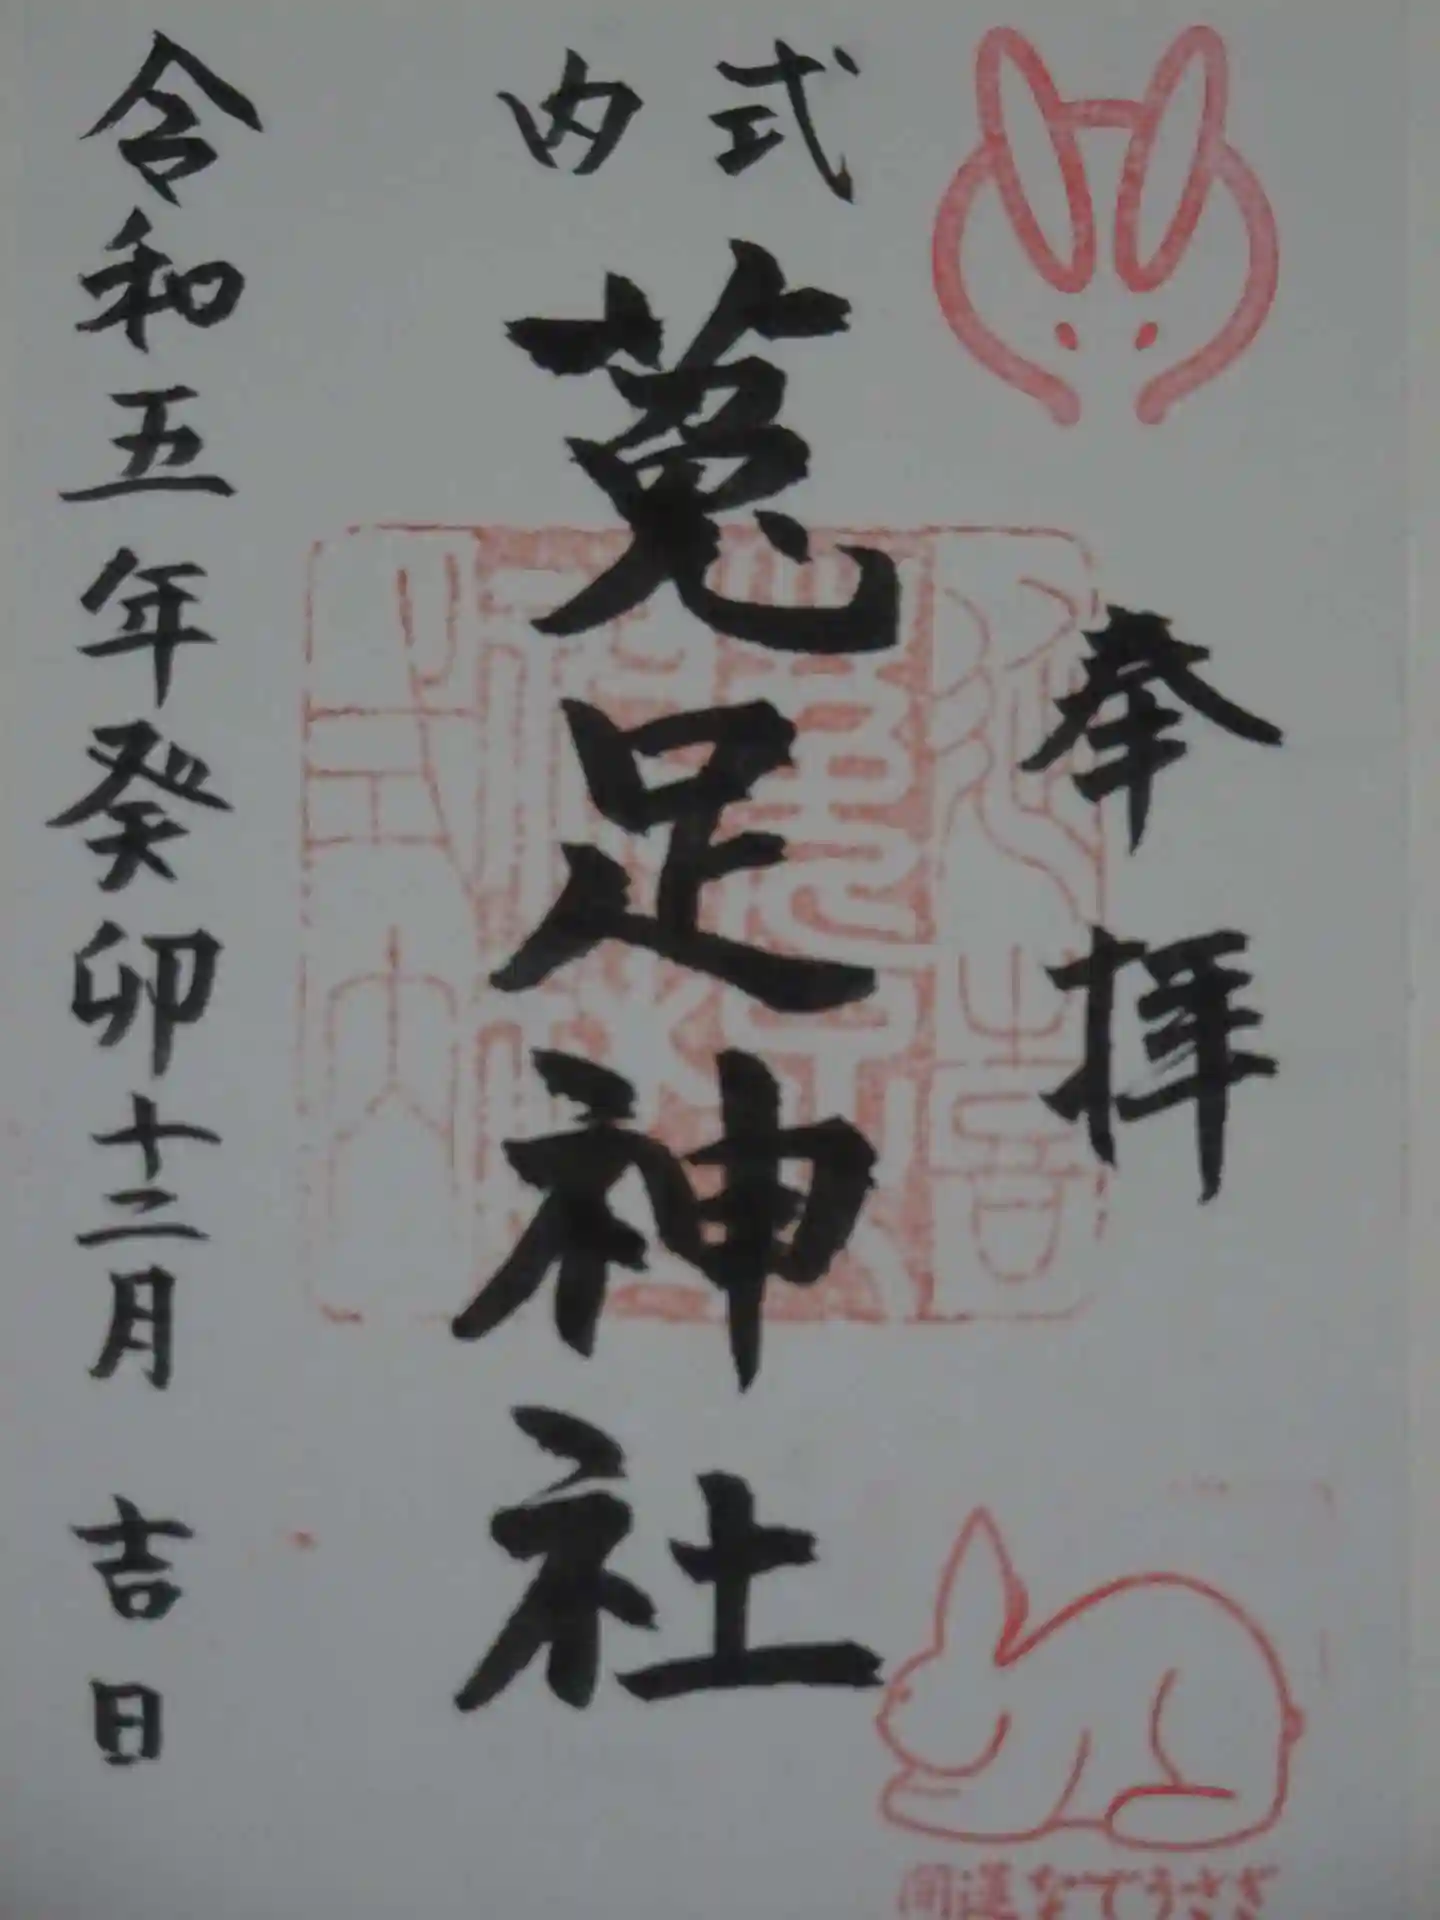 奉拝
式内
菟足神社
令和五年癸卯十二月 吉日
開運なでうさぎ